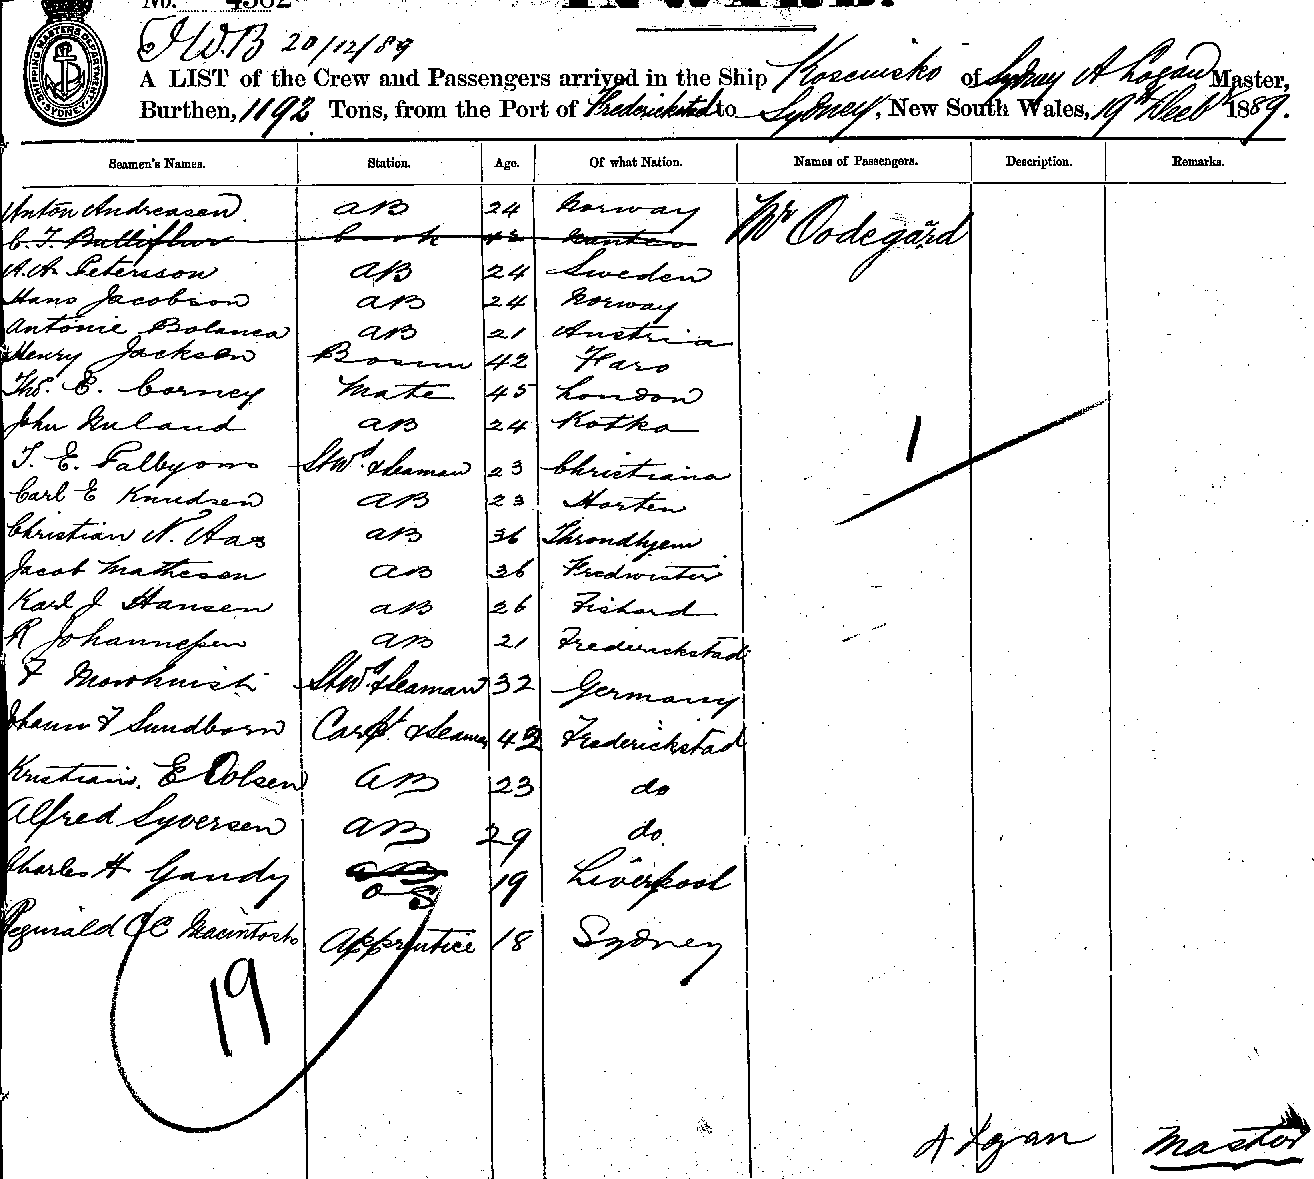 No. 4382 INWARD.
SHIPPING MASTERS DEPARTMENT SYDNEY
J.W.B 20/12/89
A LIST of the Crew and Passengers arrived in the Ship Kosciusko of Sydney A Logan Master,
Burthen, 1192 Tons, from the Port of Frederickstad to Sydney, New South Wales, 19th Decbr 1889.
Seamen's Names. Station. Age. Of what Nation. Names of Passengers. Description. Remarks.
Anton Andreasen AB 24 Norway Mr Oodegård
C. T. Cook 42
A. A. Petersson AB 24 Sweden
Hans Jacobson AB 24 Norway
Antonie Bolanca AB 21 Austria
Henry Jackson Bosun 42 Faro
Thos. E. Corney Mate 45 London
John Nuland AB 24 Kotka
T. E. Falbyoms Stwd & Seaman 23 Christiana
Carl E Knudsen AB 23 Horten
Christian N. Aas AB 36 Throndhjem
Jacob Mathesen AB 36
Karl J Hansen AB 26
R Johannesen AB 21 Frederickstad
F Stwd & Seaman 32 Germany
Johann F Sundborn Carpt & Seaman 42 Frederickstad
Kristian. E Oolsen AB 23 do
Alfred Syversen AB 29 do.
Charles H Gandy AB OS 19 Liverpool
Reginald C E Macintosh Apprentice 18 Sydney
1
19
A Logan Master